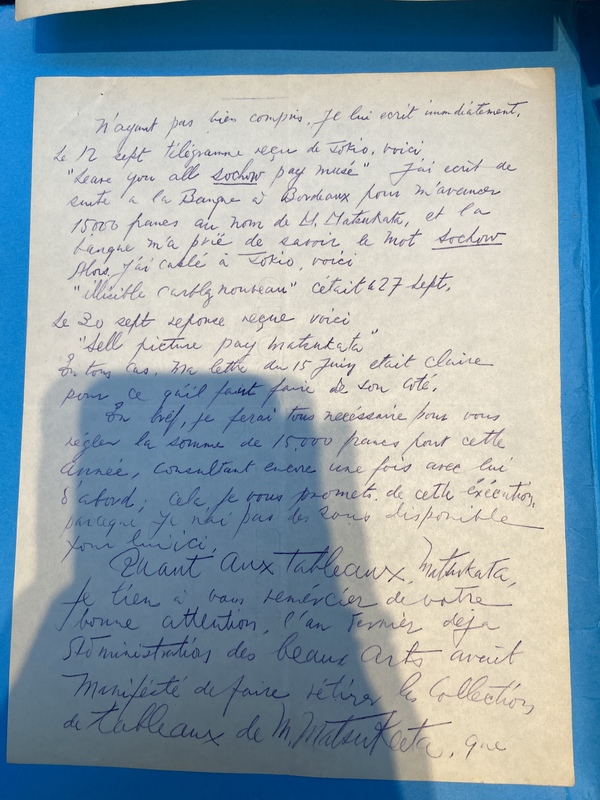 N'ayant pas bien compris. Je lui ecrit immdiatement.
Le 12 sept télégramme reçu de Tokio, voici
"Leave you all sochow pay musé" J'ai ecrit de
suite a la Banque à Bordeaux pour m'avancer
15000 francs au nom de M. Matsukata, et la
banque m'a prié de savoir le mot sochow
Alors, j'ai cablé à Tokio, voici
"illisible cablez nouveau" c'était 27 sept.
Le 30 sept reponse reçue voici
"Sell picture pay Matsukata"
En tous cas. Ma lettre du 15 Juin etait claire
pour ce qu'il faut faire de son coté.
En bref, je ferai tous necéssaire pour vous
régler la somme de 15.000 francs pour cette
année, consultant encore une fois avec lui
d'abord; cela, je vous promets. de cette éxécution,
parceque je n'ai pas des sous disponible
pour lui ici.
Quant aux tableaux, Matsukata,
Je tien à vous remércier de votre
bonne attention, l'an dernier déja
Administration des beaux Arts avait
Maniféstè de faire rétirer les Collections
de tableaux de M. Matsukata, que